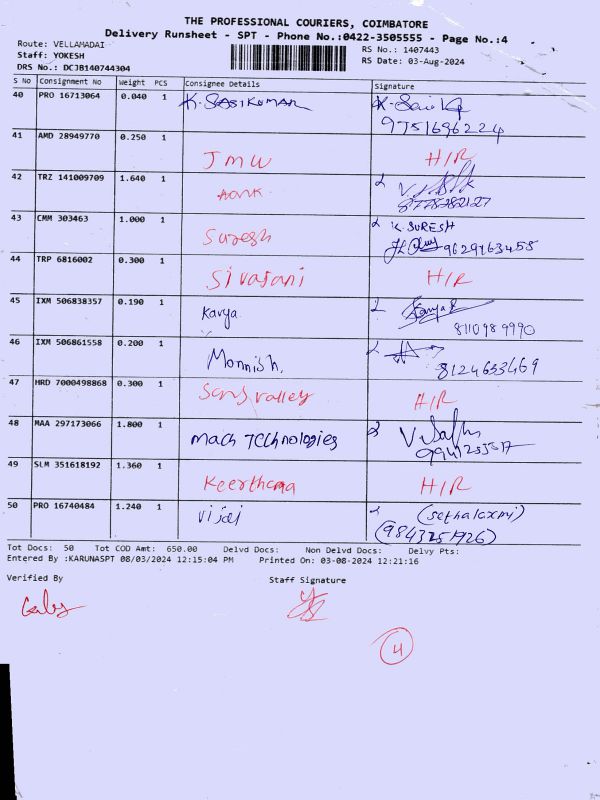 THE PROFESSIONAL COURIERS, COIMBATORE
Delivery Runsheet - SPT - Phone No.:0422-3505555 - Page No.:4
Route: VELLAMADAI
Staff: YOKESH
DRS No.: DCJB140744304
RS No.: 1407443
RS Date: 03-Aug-2024
S No Consignment No Weight PCS Consignee Details Signature
40 PRO 16713064 0.040 1 K. SASIKUMAR
9751696224
41 AMD 28949770 0.250 1 JMW H/R
42 TRZ 141009709 1.640 1
43 CMM 303463 1.000 1 Suresh K. SURESH
9629963455
44 TRP 6816002 0.300 1 Sivasani H/R
45 IXM 506838357 0.190 1 Kavya
8110989990
46 IXM 506861558 0.200 1 Monnish,
8124633469
47 HRD 7000498868 0.300 1 Sans valley H/R
48 MAA 297173066 1.800 1 Mach Technologies
49 SLM 351618192 1.360 1 Keerthana H/R
50 PRO 16740484 1.240 1 Vijai (Sethalaxmi)
(9843251926)
Tot Docs: 50 Tot COD Amt: 650.00 Delvd Docs: Non Delvd Docs: Delvy Pts:
Entered By :KARUNASPT 08/03/2024 12:15:04 PM Printed On: 03-08-2024 12:21:16
Verified By Staff Signature
4